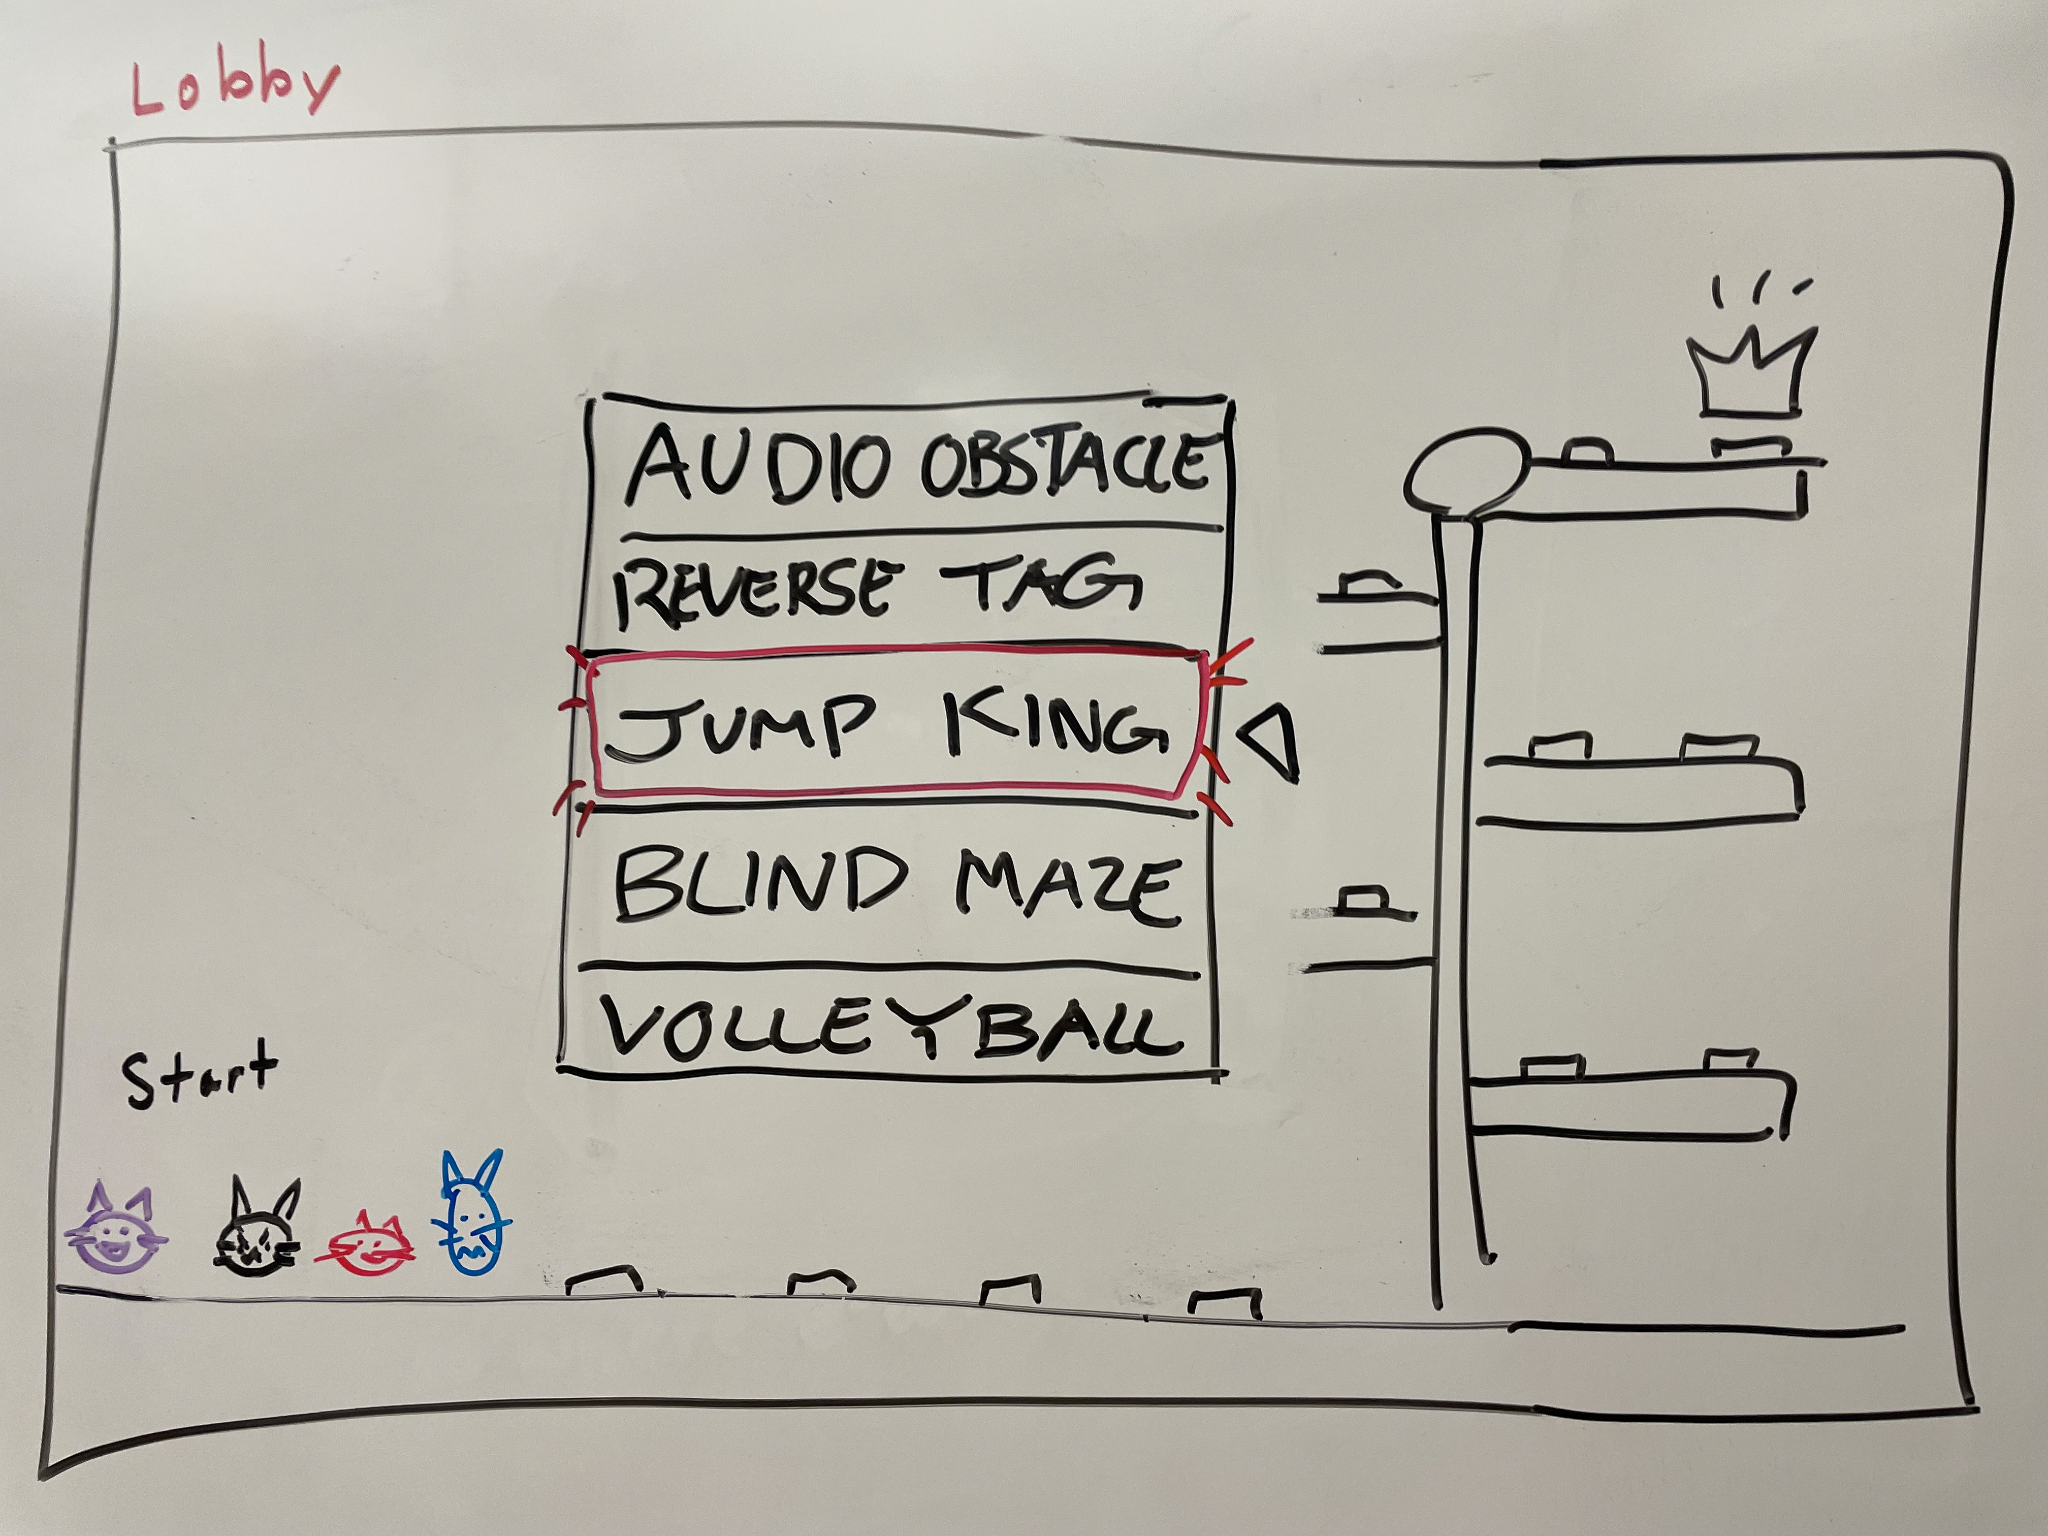 Lobby
AUDIO OBSTACLE
REVERSE TAG
JUMP KING
BLIND MAZE
VOLLEYBALL
Start